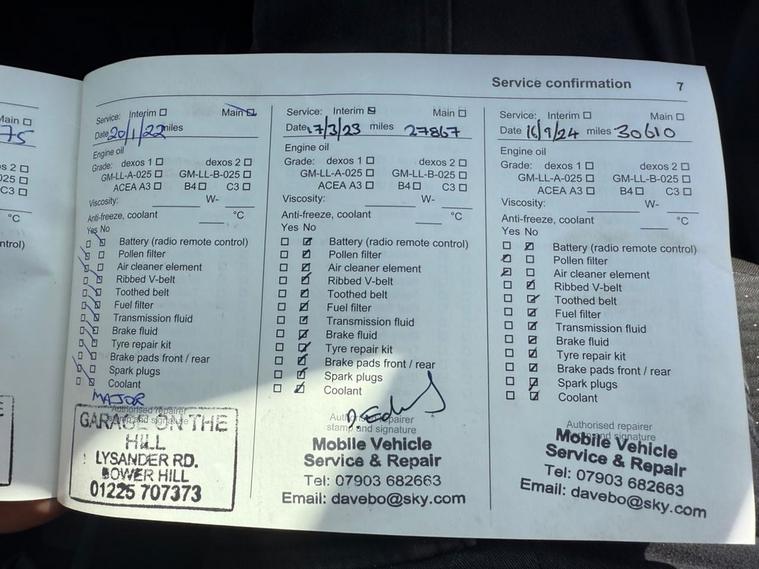 Service confirmation 7
Main
75
2
-025
C3
°C
ntrol)
Service: Interim Main
Date 20/1/22 miles
Engine oil
Grade: dexos 1 dexos 2
GM-LL-A-025 GM-LL-B-025
ACEA A3 B4 C3
Viscosity: W-
Anti-freeze, coolant °C
Yes No
Battery (radio remote control)
Pollen filter
Air cleaner element
Ribbed V-belt
Toothed belt
Fuel filter
Transmission fluid
Brake fluid
Tyre repair kit
Brake pads front / rear
Spark plugs
Coolant
MAJOR
Authorised repairer
stamp and signature
GARAGE ON THE
HILL
LYSANDER RD.
BOWER HILL
01225 707373
Service: Interim Main
Date 17/3/23 miles 27867
Engine oil
Grade: dexos 1 dexos 2
GM-LL-A-025 GM-LL-B-025
ACEA A3 B4 C3
Viscosity: W-
Anti-freeze, coolant °C
Yes No
Battery (radio remote control)
Pollen filter
Air cleaner element
Ribbed V-belt
Toothed belt
Fuel filter
Transmission fluid
Brake fluid
Tyre repair kit
Brake pads front / rear
Spark plugs
Coolant
Authorised repairer
stamp and signature
Mobile Vehicle
Service & Repair
Tel: 07903 682663
Email: davebo@sky.com
Service: Interim Main
Date 16/9/24 miles 30610
Engine oil
Grade: dexos 1 dexos 2
GM-LL-A-025 GM-LL-B-025
ACEA A3 B4 C3
Viscosity: W-
Anti-freeze, coolant °C
Yes No
Battery (radio remote control)
Pollen filter
Air cleaner element
Ribbed V-belt
Toothed belt
Fuel filter
Transmission fluid
Brake fluid
Tyre repair kit
Brake pads front / rear
Spark plugs
Coolant
Authorised repairer
stamp and signature
Mobile Vehicle
Service & Repair
Tel: 07903 682663
Email: davebo@sky.com